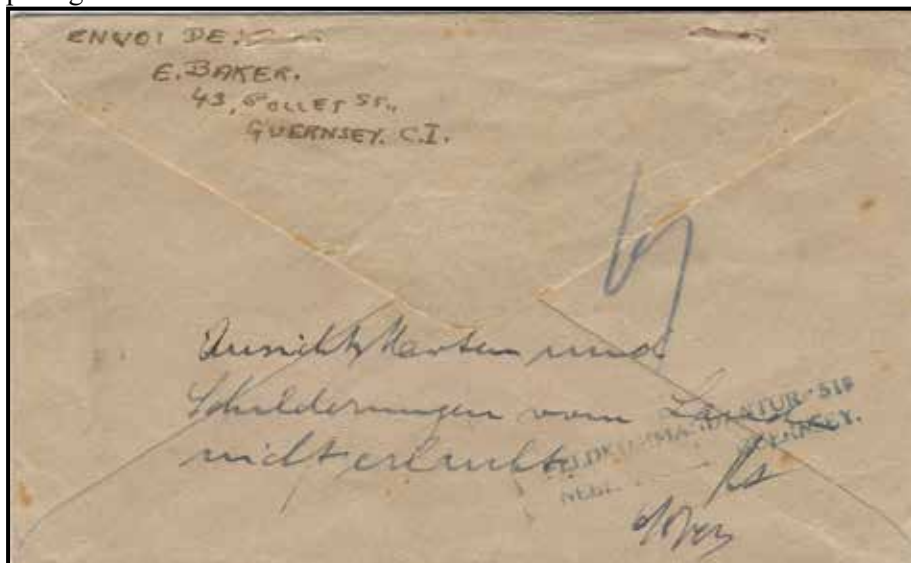 ENVOI DE:
E. BAKER.
43, POLLET ST.,
GUERNSEY. C.I.
Ansichtskarten und
Schilderungen vom Land
nicht erlaubt
FELDKOMMANDANTUR 515
NEBENSTELLE GUERNSEY.